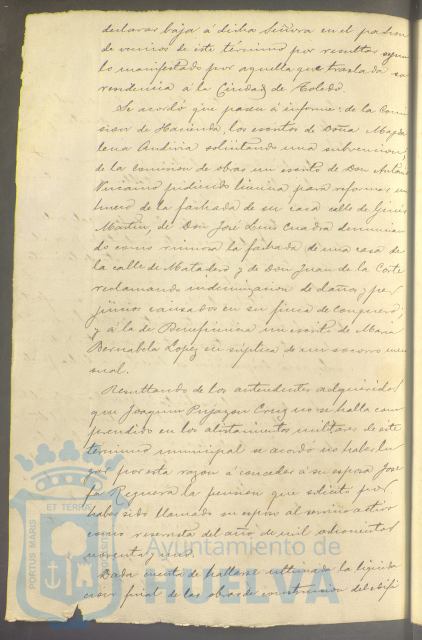 declarar baja á dicha Señora en el padron
de vecinos de este término por resultar segun
lo manifestado por aquella que traslada su
residencia á la Ciudad de Toledo.
Se acordó que pasen á informe: de la Comi
sion de Hacienda, los escritos de Doña Magda
lena solicitando una subvencion
de la comision de obras un escrito de Don Antonio
Vizcaino pidiendo licencia para reformar un
hueco de la fachada de su casa calle de Ginés
Martin, de Don José Luis Cuadra denuncian
do como ruinosa la fachada de una casa de
la calle de Matadero y de Don Juan de la Corte
reclamando indemnizacion de daños y per
juicios causados en su finca de Conquero,
y á la de Beneficencia un escrito de Maria
Bernabela Lopez en súplica de un socorro men
sual.
Resultando de los antecedentes adquiridos
que Joaquin Cruz no se halla com
prendido en los alistamientos militares de este
término municipal se acordó no haber lu
gar por esta razon á conceder á su esposa Jose
fa Reguera la pension que solicitó por
haber sido llamado su esposo al servicio activo
como reservista del año de mil ochocientos
noventa y uno.
Dada cuenta de hallarse ultimada la liquida
cion final de las obras de construccion del
PORTUS MARIS
ET TERRÆ
CUSTODIA
Ayuntamiento de
HUELVA